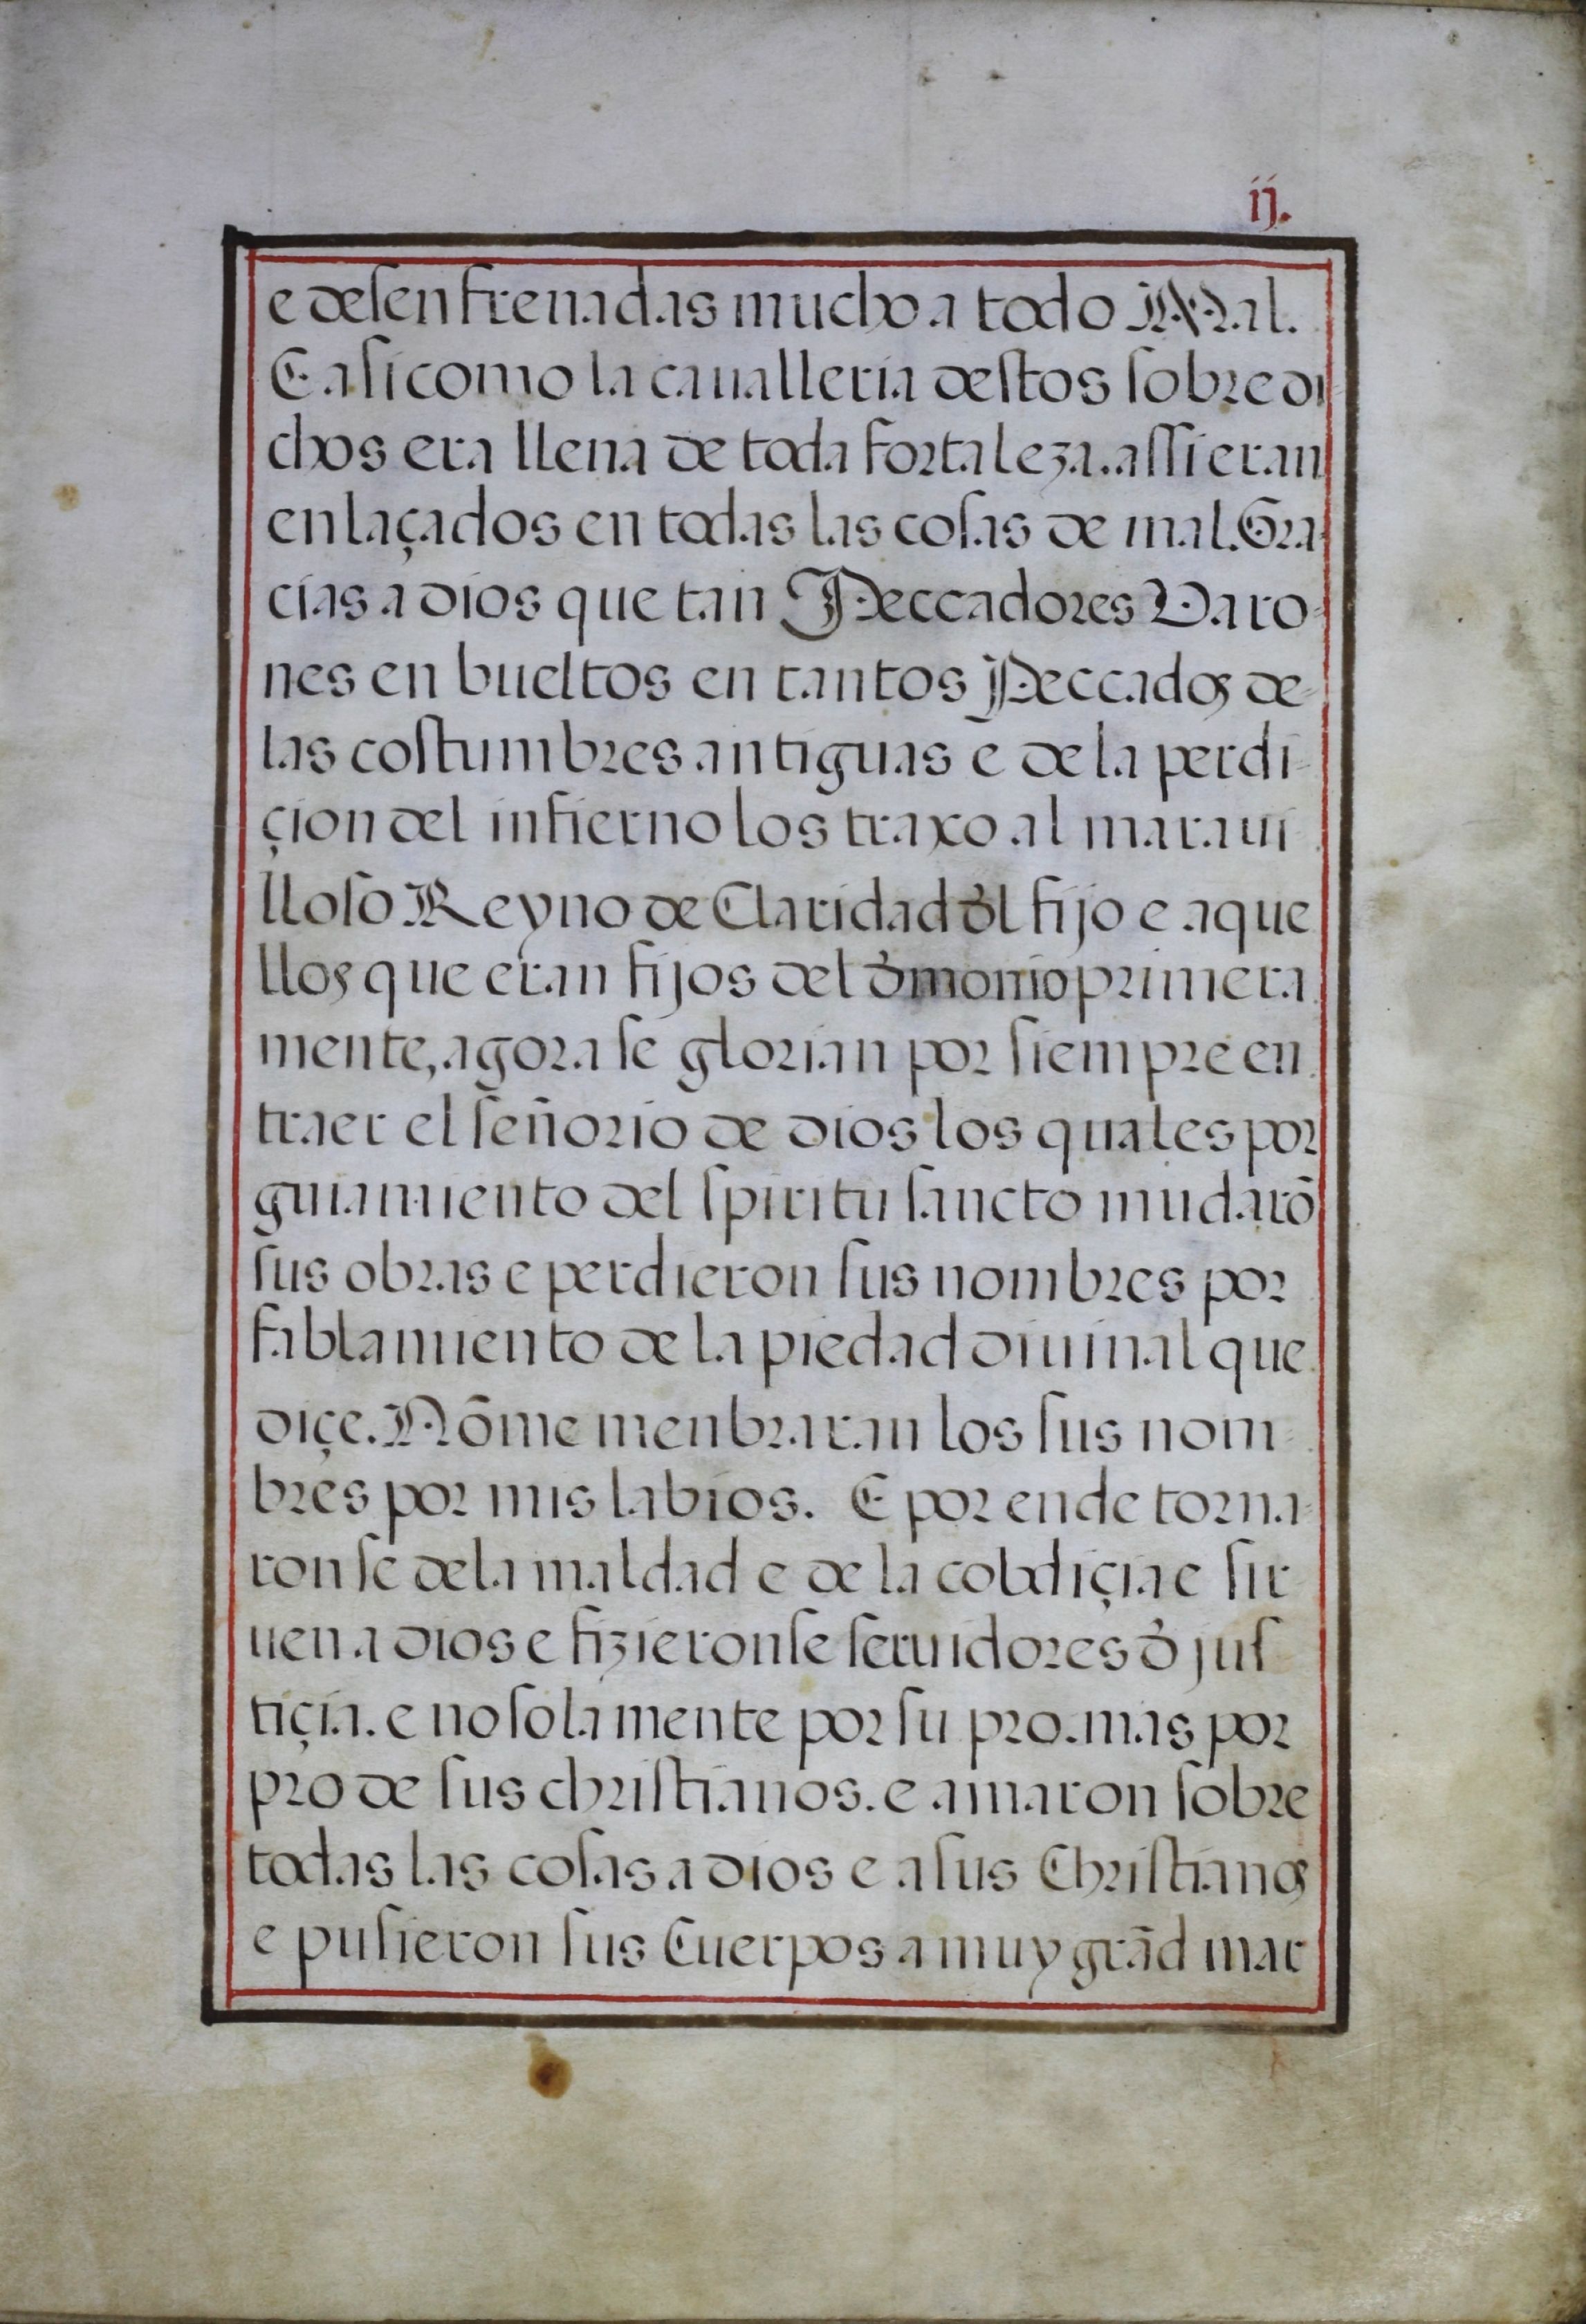 ij.
e desenfrenadas mucho a todo Mal.
E asi como la caualleria destos sobre di-
chos era llena de toda fortaleza. assi eran
enlaçados en todas las cosas de mal. Gra-
cias a dios que tan Peccadores Varo-
nes en bueltos en tantos Peccados de-
las costumbres antiguas e de la perdi-
çion del infierno los traxo al maraui
lloso Reyno de Claridad dl fijo e aque
llos que eran fijos del dmonio primera
mente, agora se glorian por siempre en
traer el señorio de dios los quales por
guiamiento del spiritu sancto mudarō
sus obras e perdieron sus nombres por
fablamiento de la piedad diuinal que
diçe. Nō me menbraran los sus nom-
bres por mis labios. E por ende torna-
ron se dela maldad e de la cobdiçia e sir
uen a dios e fizieronse seruidores d jus
tiçia. e no sola mente por su pro. mas por
pro de sus christianos. e amaron sobre
todas las cosas a dios e a sus Christianos
e pusieron sus Cuerpos a muy grād mar